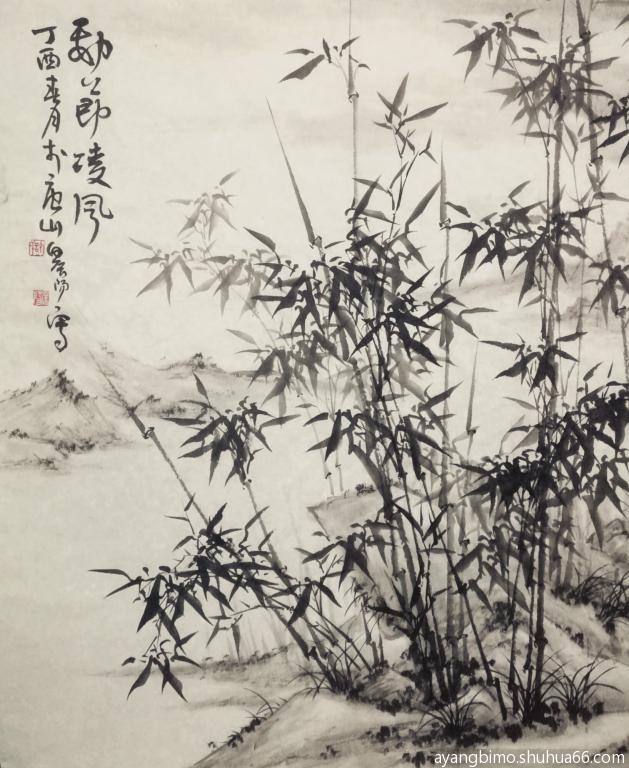 劲节凌风
丁酉春月于唐山
写
ayangbimo.shuhua66.com